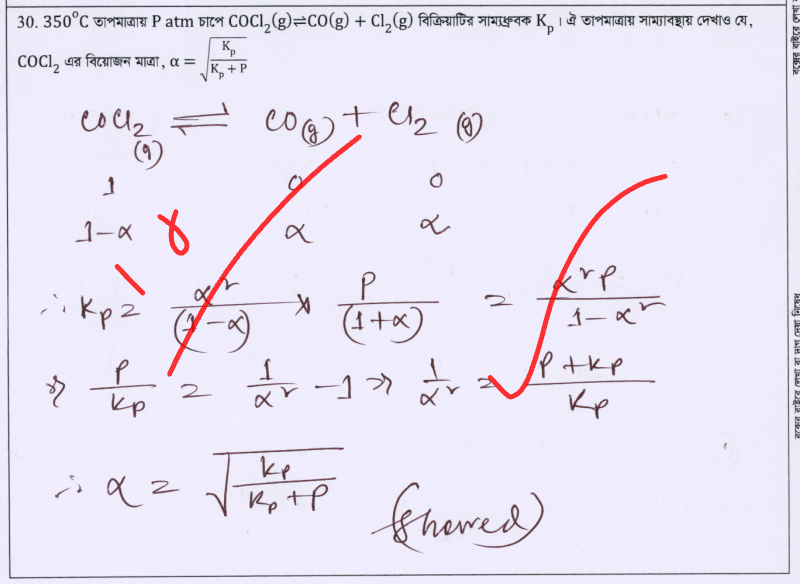 30. 350°C তাপমাত্রায় P atm চাপে COCl₂(g)⇌CO(g) + Cl₂(g) বিক্রিয়াটির সাম্যধ্রুবক Kₚ। ঐ তাপমাত্রায় সাম্যাবস্থায় দেখাও যে,
COCl₂ এর বিয়োজন মাত্রা, α = √(Kₚ/(Kₚ + P))
COCl₂ (g) ⇌ CO(g) + Cl₂ (g)
1 0 0
1-α α α
∴ Kp = α²/(1-α) × P/(1+α) = α²P/(1-α²)
⇒ P/Kp = 1/α² - 1 ⇒ 1/α² = (P+Kp)/Kp
∴ α = √(Kp/(Kp+P))
(showed)